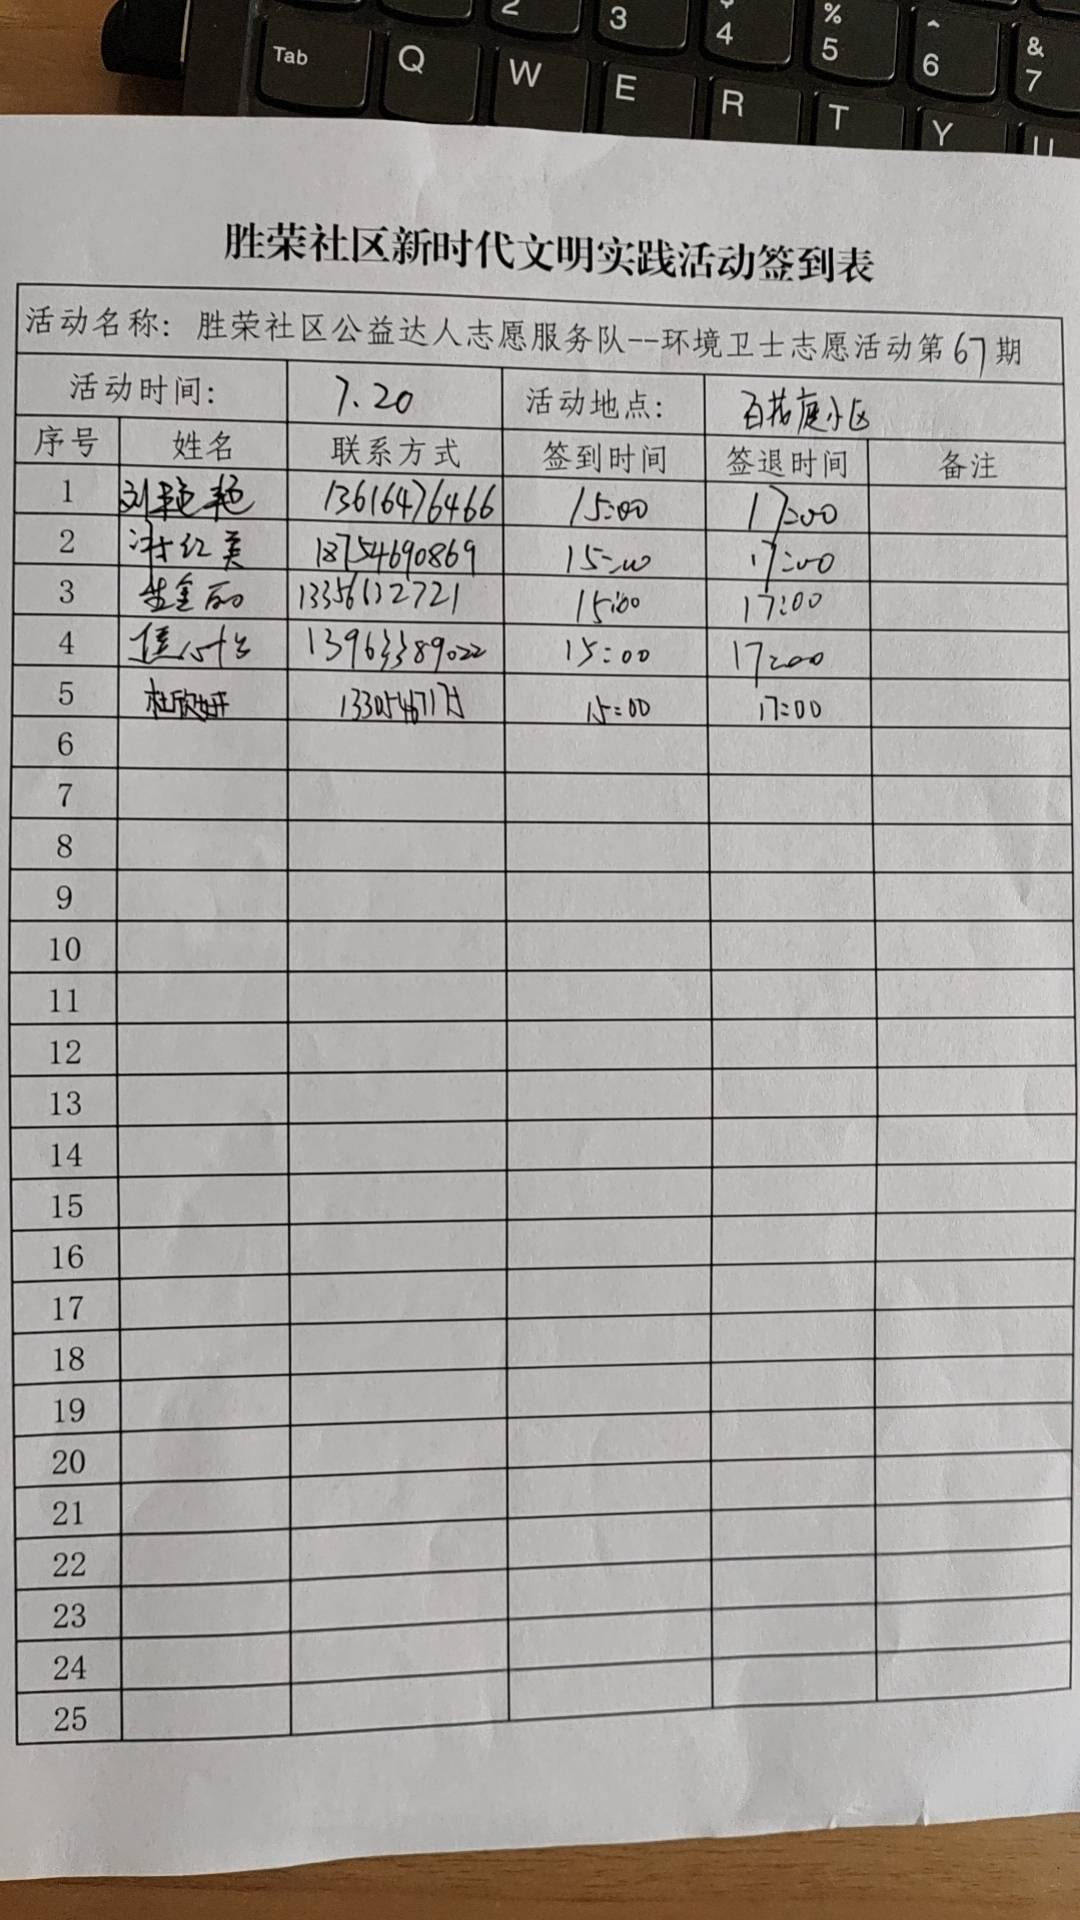 2 3 $ 4 % 5 ^ 6 & 7
Tab Q W E R T Y U
胜荣社区新时代文明实践活动签到表
活动名称: 胜荣社区公益达人志愿服务队--环境卫士志愿活动第67期
活动时间: 7.20 活动地点: 百花庭小区
序号 姓名 联系方式 签到时间 签退时间 备注
1 刘艳艳 13616476466 15:00 17:00
2 红英 18754690869 15:00 17:00
3 13356132721 15:00 17:00
4 13963389022 15:00 17:00
5 杜欣妍 15:00 17:00
6
7
8
9
10
11
12
13
14
15
16
17
18
19
20
21
22
23
24
25